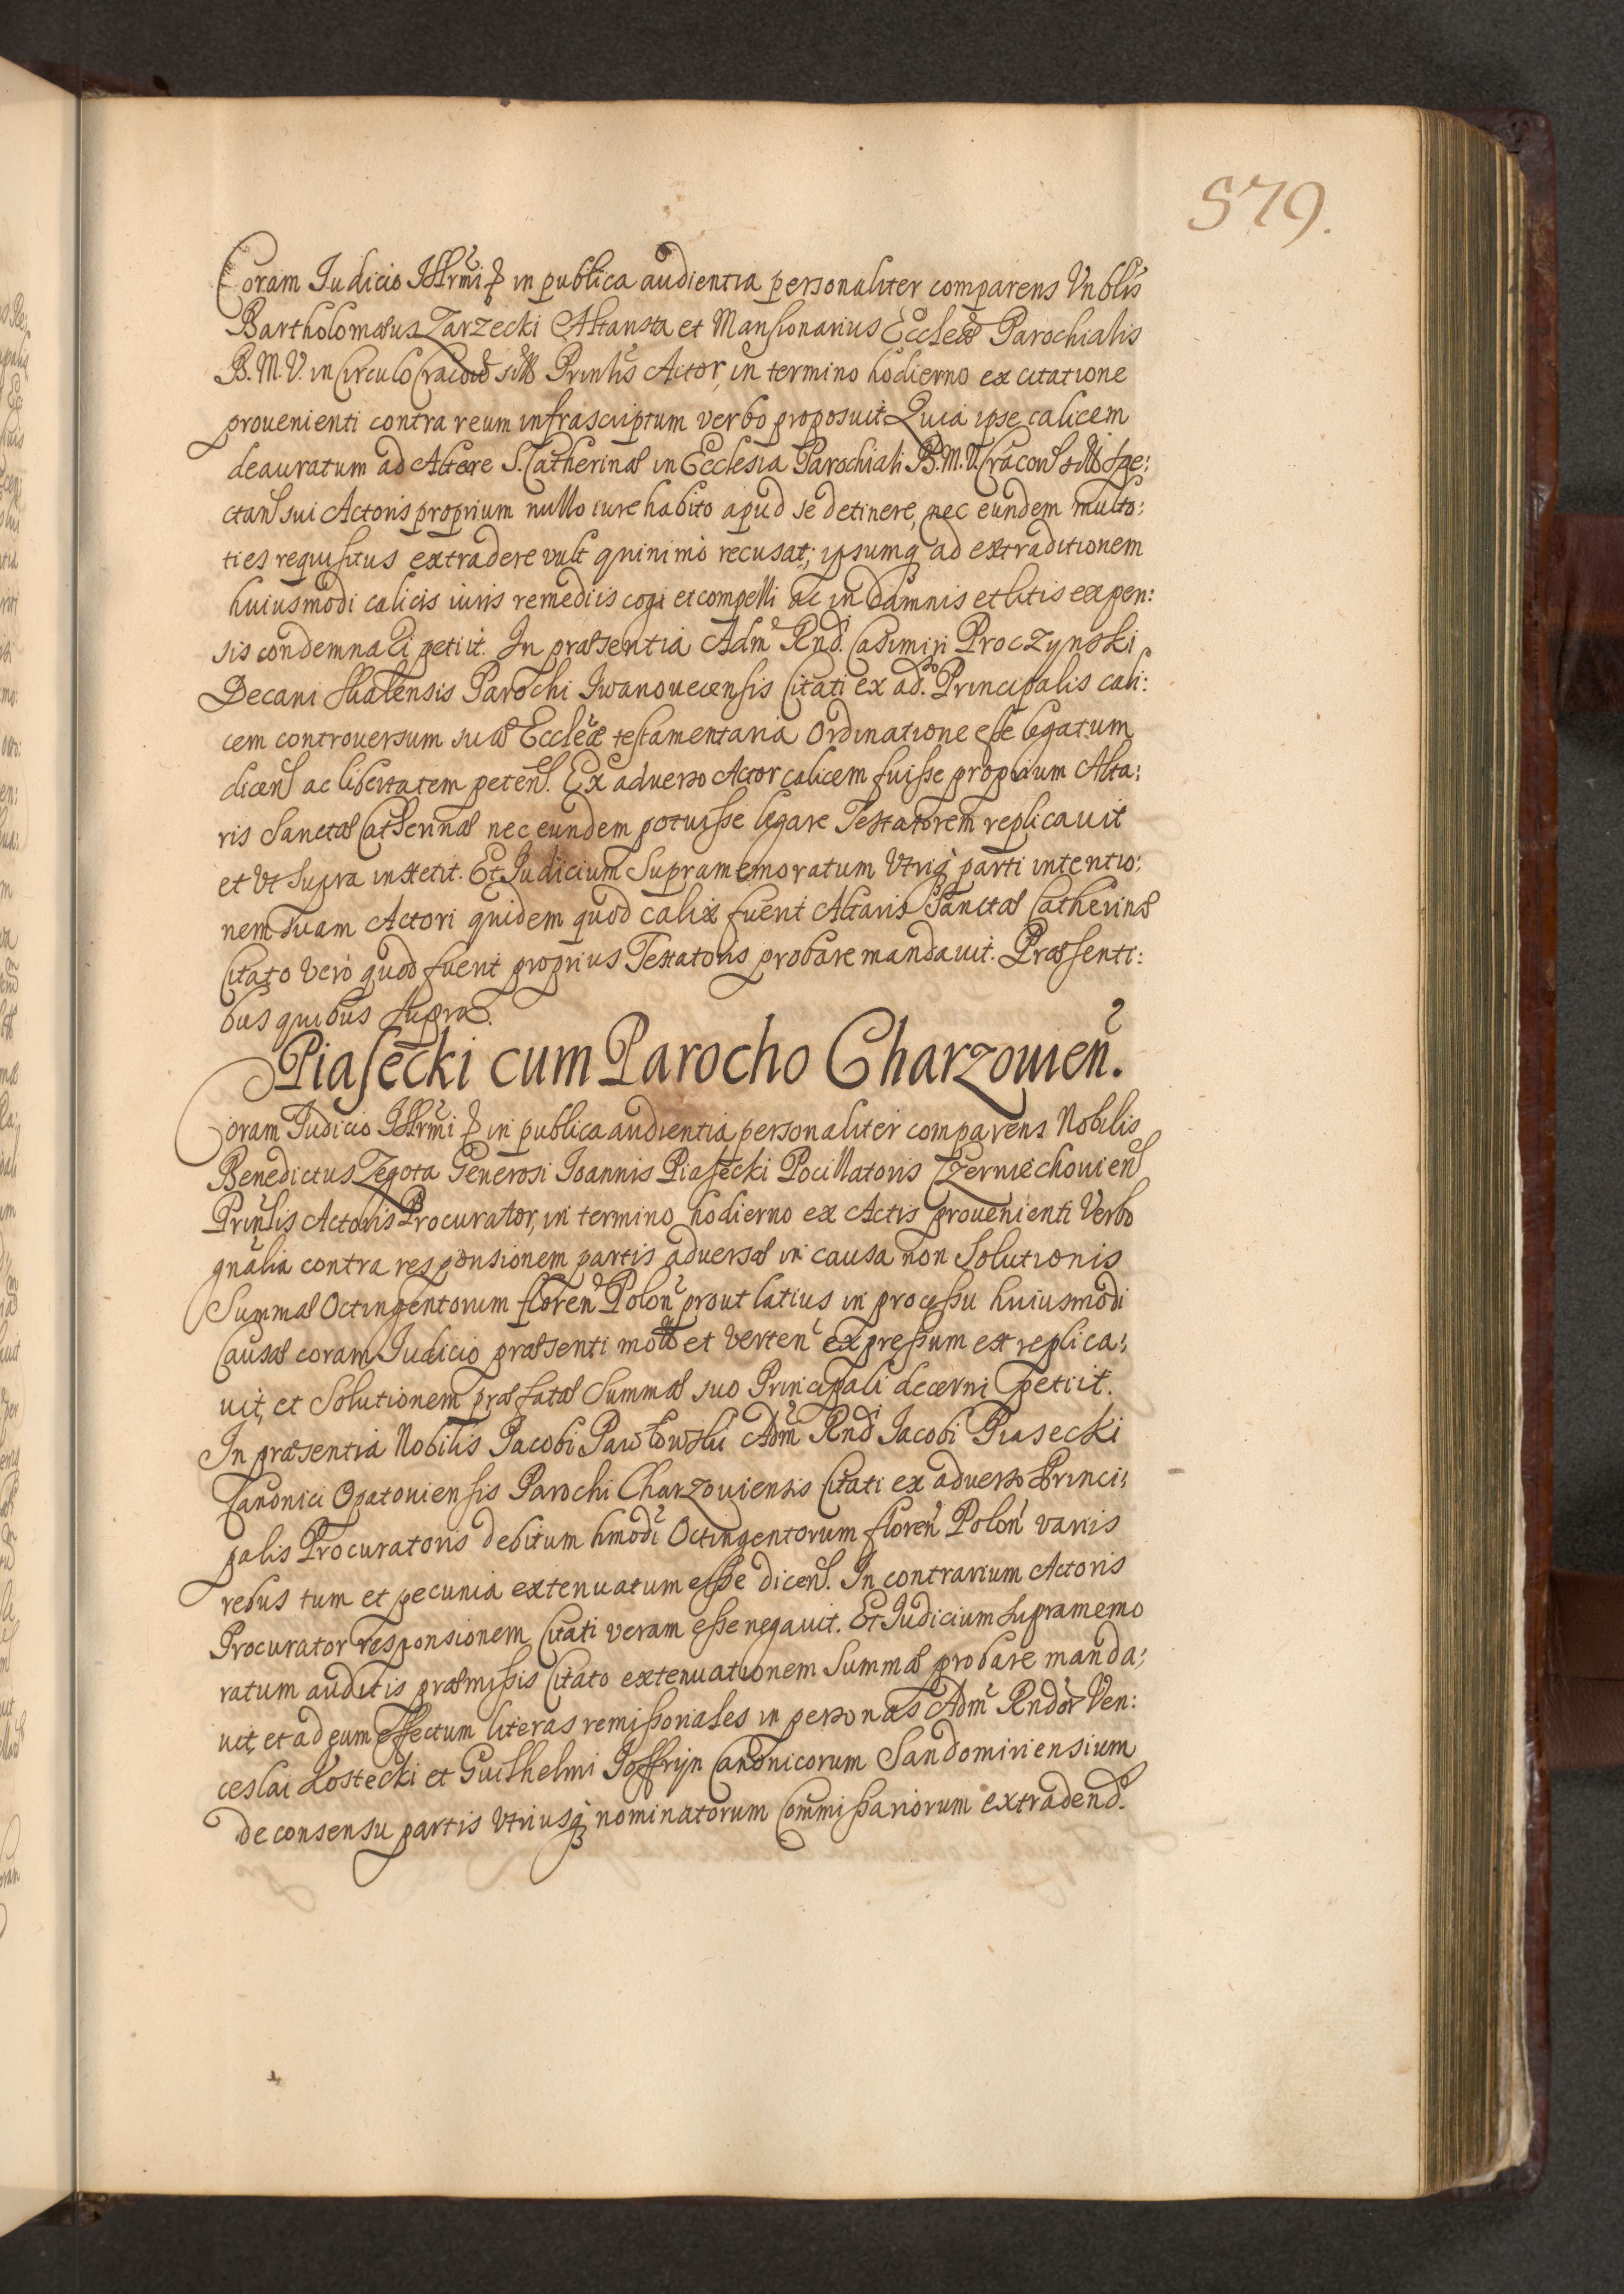 579.
Coram Judicio Illrmi & in publica audientia personaliter comparens Vnblis
Bartholomæus Zarzecki Altarista et Mansionarius Eccleæ Parochialis
B. M. V. in Circulo Cracoviæ sitæ Prinlis Actor, in termino hodierno ex citatione
prouenienti contra reum infrascriptum verbo proposuit Quia ipse calicem
deauratum ad Altare S. Catherinæ in Ecclesia Parochiali B. M. V. Cracovien sitæ spe:
ctan sui Actoris proprium nullo iure habito apud se detinere, nec eundem multo:
ties requisitus extradere vult quinimò recusat; ipsumq ad extraditionem
huiusmodi calicis iuris remediis cogi et compelli ac in damnis et litis expen:
sis condemnari petiit. In præsentia Adm Rnd. Casimiri Proczynski
Decani Skalensis Parochi Iwanouecensis Citati ex ad.so Principalis cali:
cem controuersum suæ Eccleæ testamentaria Ordinatione esse legatum
dicen ac libertatem peten. Ex aduerso Actor calicem fuisse proprium Alta:
ris Sanctæ Catherinæ nec eundem potuisse legare Testatorem replicauit
et vt supra institit. Et Judicium Supramemoratum Vtriq parti intentio:
nem suam Actori quidem quod calix fuerit Altaris Sanctæ Catherinæ
Citato Verò quod fuerit proprius Testatoris probare mandauit. Præsenti:
bus quibus Supra.
Piasecki cum Parocho Charzouien.
Coram Judicio Illrmi & in publica audientia personaliter comparens Nobilis
Benedictus Zegota Generosi Joannis Piasecki Pocillatoris Czerniechouien
Prinlis Actoris Procurator, in termino hodierno ex Actis prouenienti Verbo
gnalia contra responsionem partis aduersæ in causa non Solutionis
Summæ Octingentorum floren Polon prout latius in processu huiusmodi
Causæ coram Judicio præsenti motæ et verten expressum est replica:
uit, et Solutionem præfatæ Summæ suo Principali decerni petiit.
In præsentia Nobilis Jacobi Pawłowski Adm Rnd Jacobi Piasecki
Canonici Opatouiensis Parochi Charzouiensis Citati ex aduerso Princi:
palis Procuratoris debitum hmodi Octingentorum floren Polon variis
rebus tum et pecunia extenuatum esse dicen. In contrarium Actoris
Procurator responsionem Citati veram esse negauit. Et Judicium supramemo
ratum auditis præmissis Citato extenuationem Summæ probare manda:
uit, et ad eum effectum literas remissoriales in personas Adm Rndor Ven:
ceslai Kostecki et Guilhelmi Joffrijn Canonicorum Sandomiriensium
de consensu partis vtriusq nominatorum Commissariorum extradend.